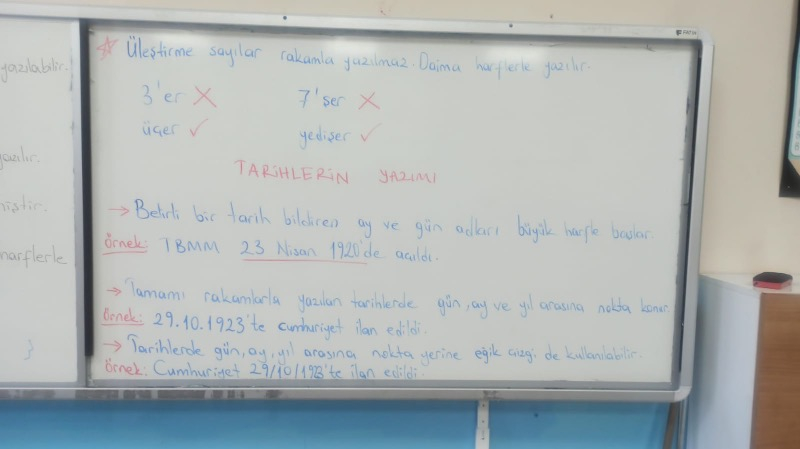 yazılabilir.
yazılır.
harflerle
Üleştirme sayılar rakamla yazılmaz. Daima harflerle yazılır.
3'er X 7'şer X
üçer ✓ yedişer ✓
TARİHLERİN YAZIMI
→ Belirli bir tarih bildiren ay ve gün adları büyük harfle başlar.
Örnek: TBMM 23 Nisan 1920'de açıldı.
→ Tamamı rakamlarla yazılan tarihlerde gün, ay ve yıl arasına nokta konur.
Örnek: 29.10.1923'te cumhuriyet ilan edildi.
→ Tarihlerde gün, ay, yıl arasına nokta yerine eğik çizgi de kullanılabilir.
Örnek: Cumhuriyet 29/10/1923'te ilan edildi.